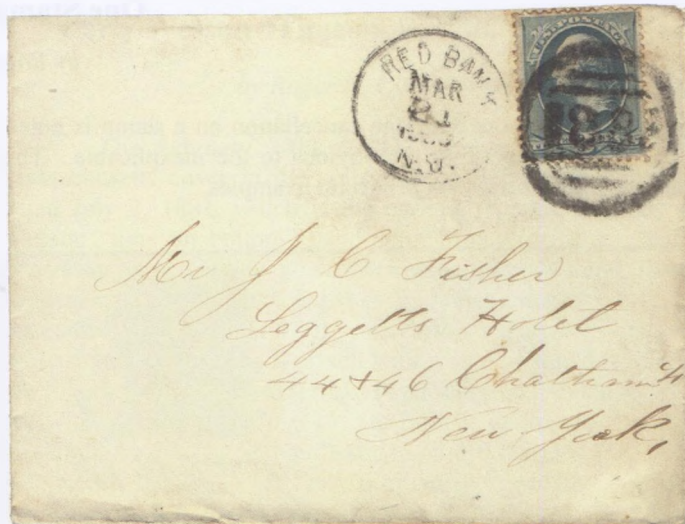 RED BANK
MAR
N.J.
U.S. POSTAGE
Mr J C Fisher
Leggetts Hotel
44 & 46 Chatham St
New York,